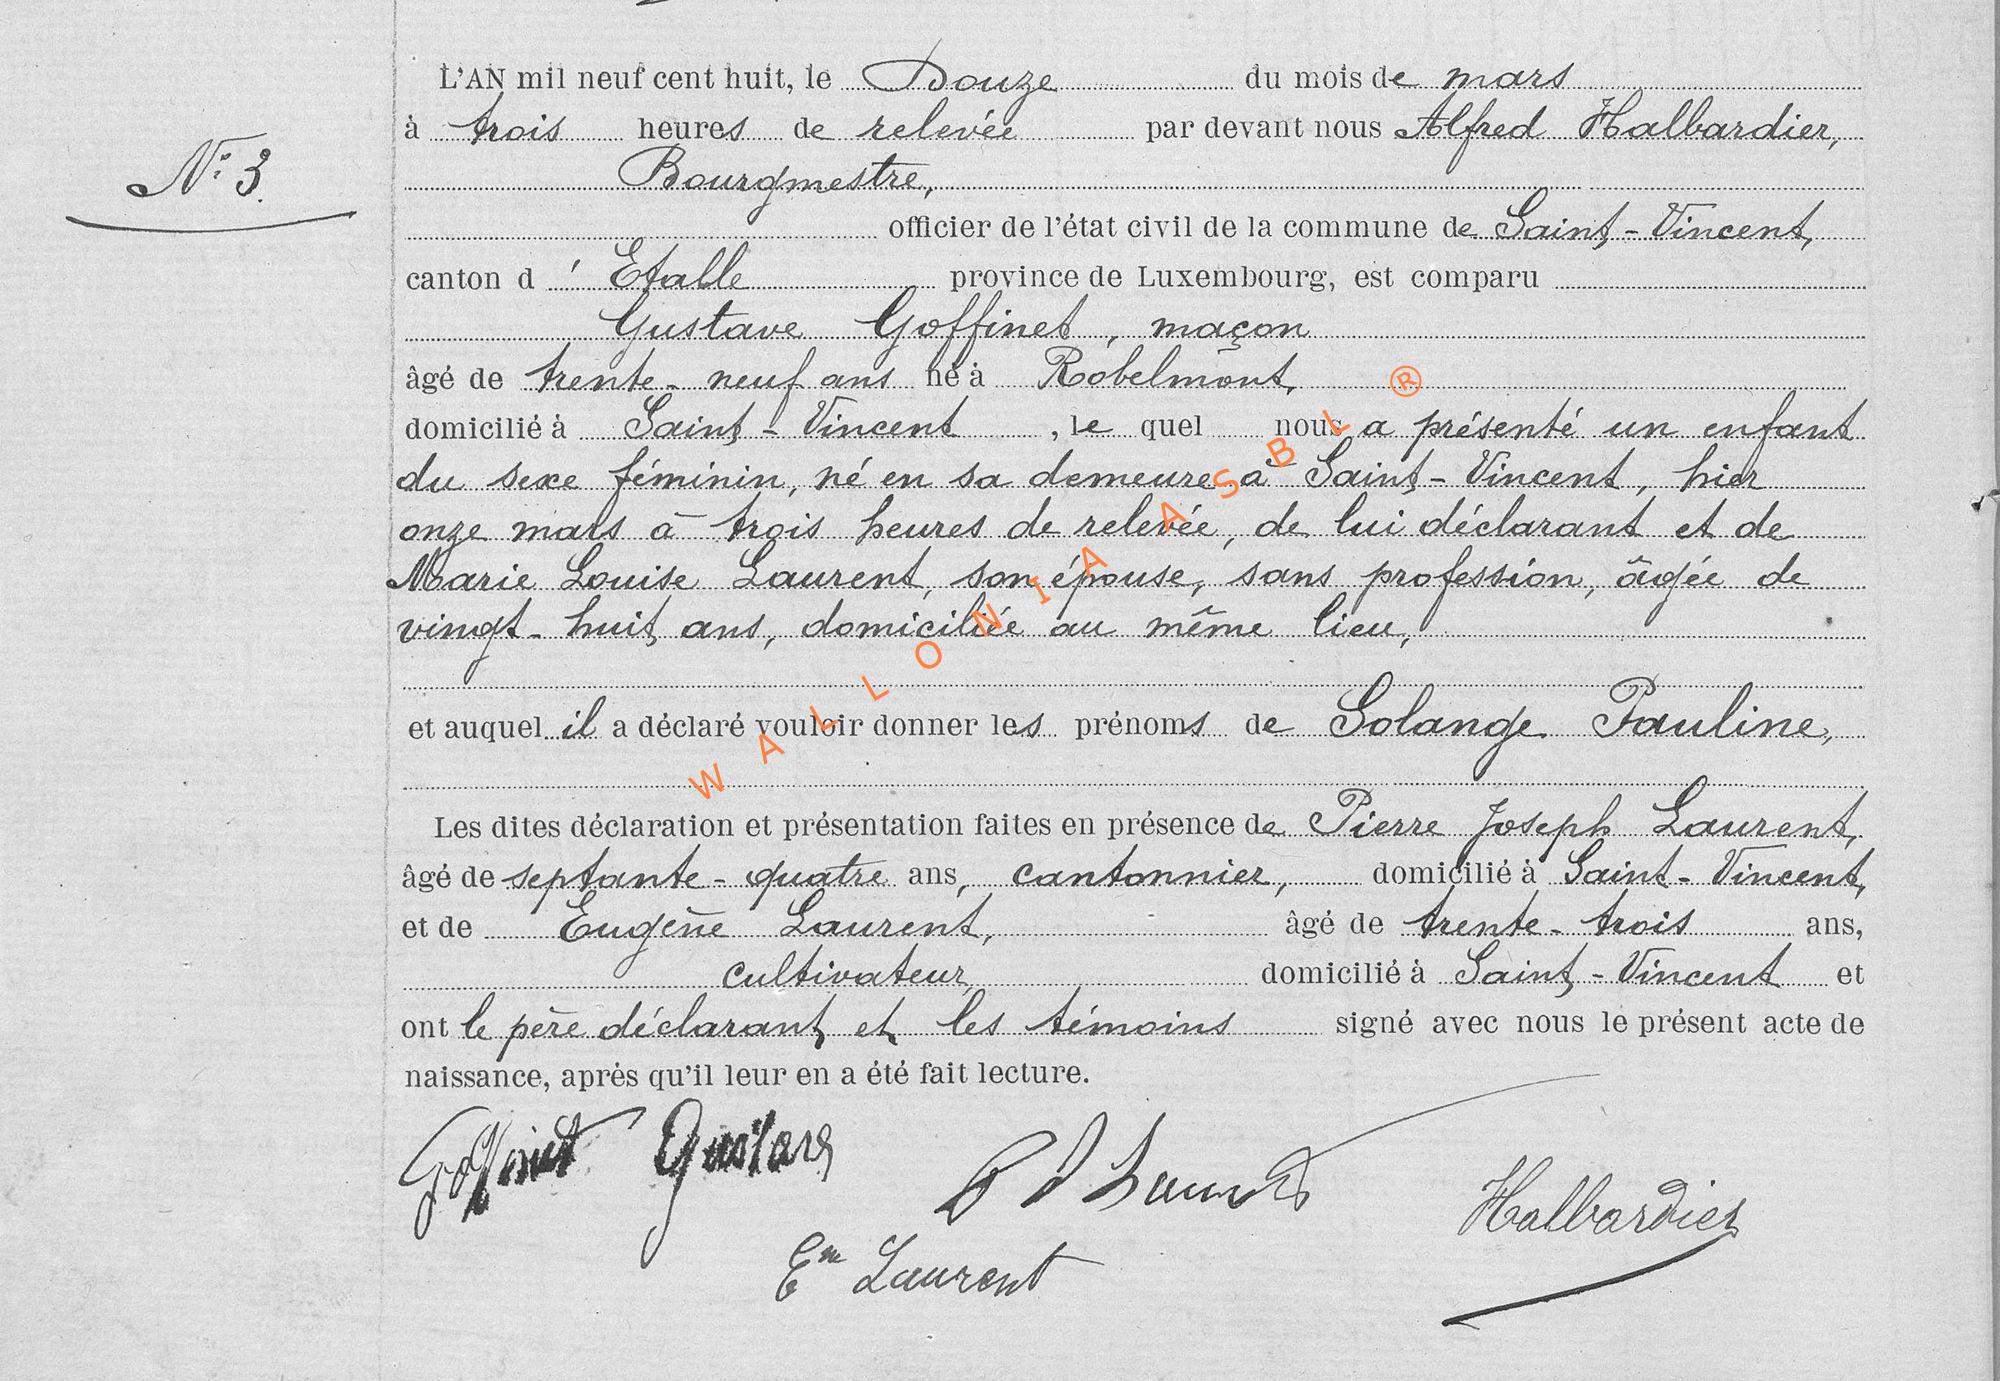 N° 3.
L'AN mil neuf cent huit, le Douze du mois de mars
à trois heures de relevée par devant nous Alfred Halbardier,
Bourgmestre,
officier de l'état civil de la commune de Saint-Vincent,
canton d' Etalle province de Luxembourg, est comparu
Gustave Goffinet, maçon
âgé de trente-neuf ans né à Robelmont,
domicilié à Saint-Vincent, le quel nous a présenté un enfant
du sexe féminin, né en sa demeure à Saint-Vincent, hier
onze mars à trois heures de relevée, de lui déclarant et de
Marie Louise Laurent, son épouse, sans profession, âgée de
vingt-huit ans, domiciliée au même lieu,
et auquel il a déclaré vouloir donner les prénoms de Solange Pauline,
Les dites déclaration et présentation faites en présence de Pierre Joseph Laurent,
âgé de septante-quatre ans, cantonnier, domicilié à Saint-Vincent,
et de Eugène Laurent, âgé de trente-trois ans,
cultivateur, domicilié à Saint-Vincent et
ont le père déclarant et les témoins signé avec nous le présent acte de
naissance, après qu'il leur en a été fait lecture.
Goffinet Gustave
P J Laurent
Halbardier
Ene Laurent
WALLONIA ASBL ®